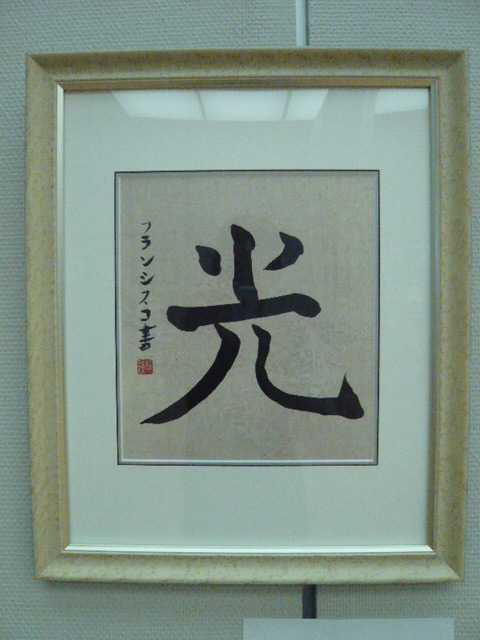 光
フランシスコ書